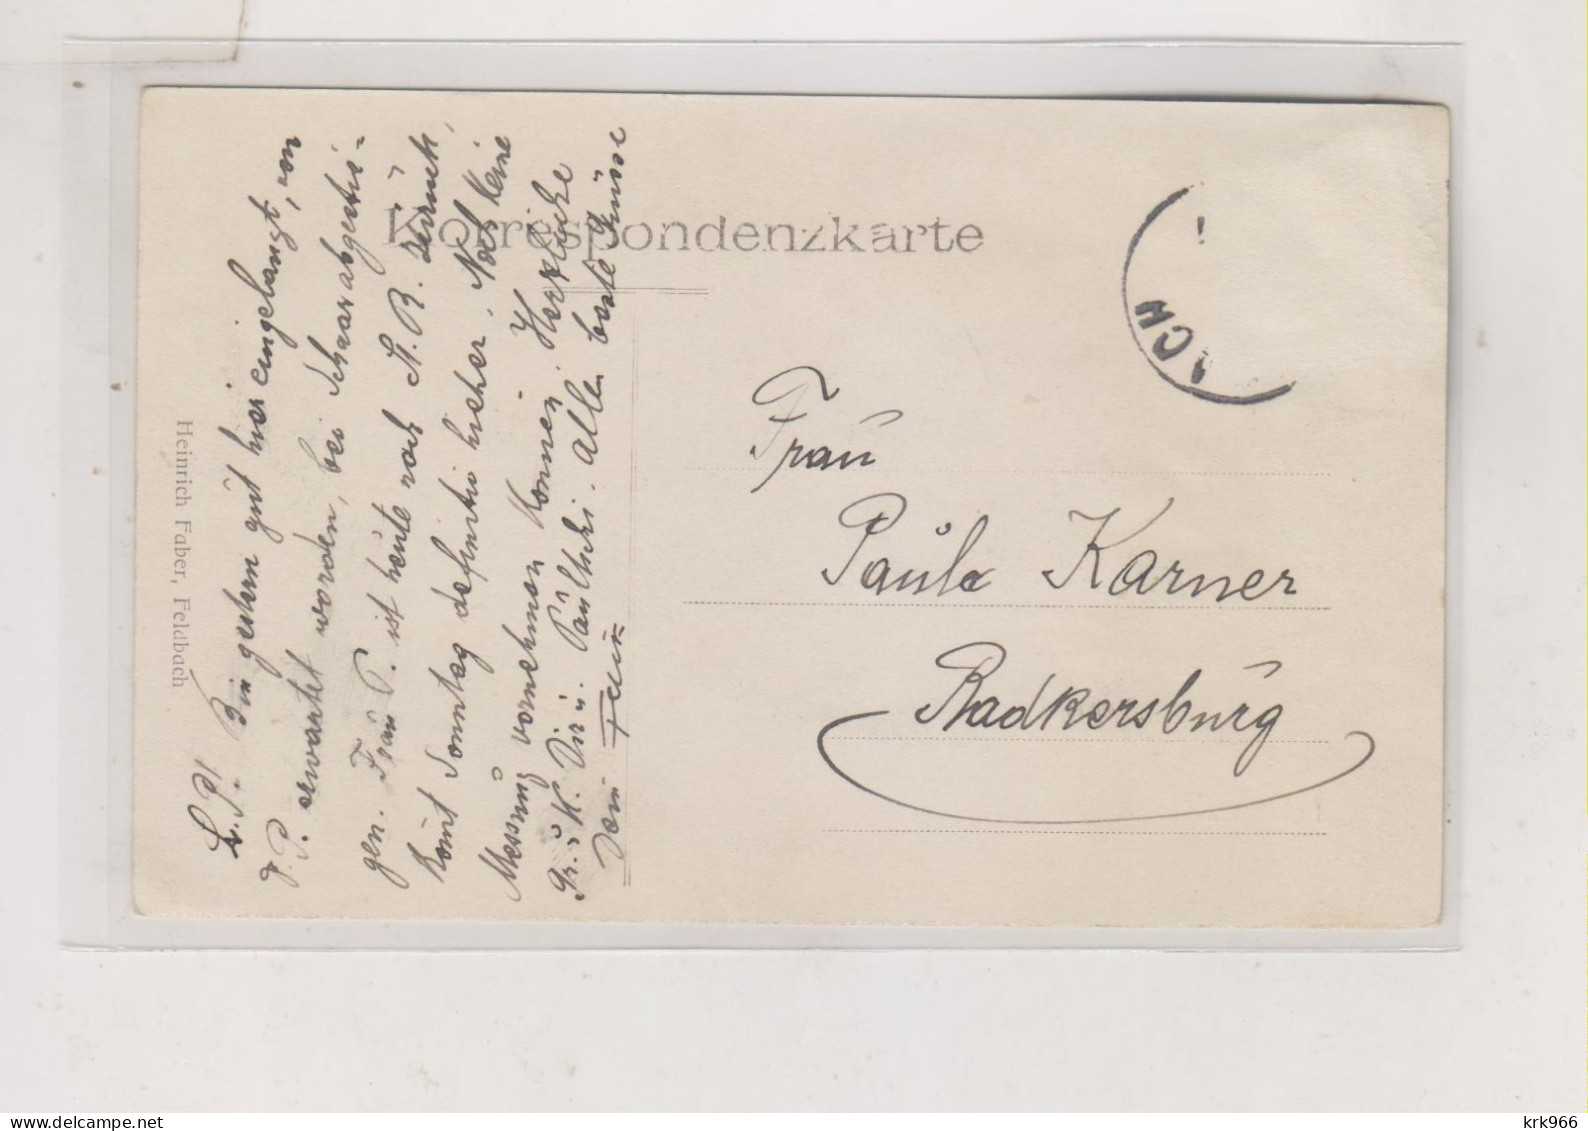 Korrespondenzkarte
L. P! Bin gestern gut hier eingelangt, von
d. P. erwartet worden, bei Schaar abgestie-
gen. Frau P. ist heute nach St. R. zurück,
komt Sonntag definitiv hieher. Noch keine
Messung vornehmen können. Herzliche
Gr. u. K. Dir u. Allen beste Grüsse
Dein
Heinrich Faber, Feldbach
ACH
Frau
Paula Karner
Radkersburg
krk966